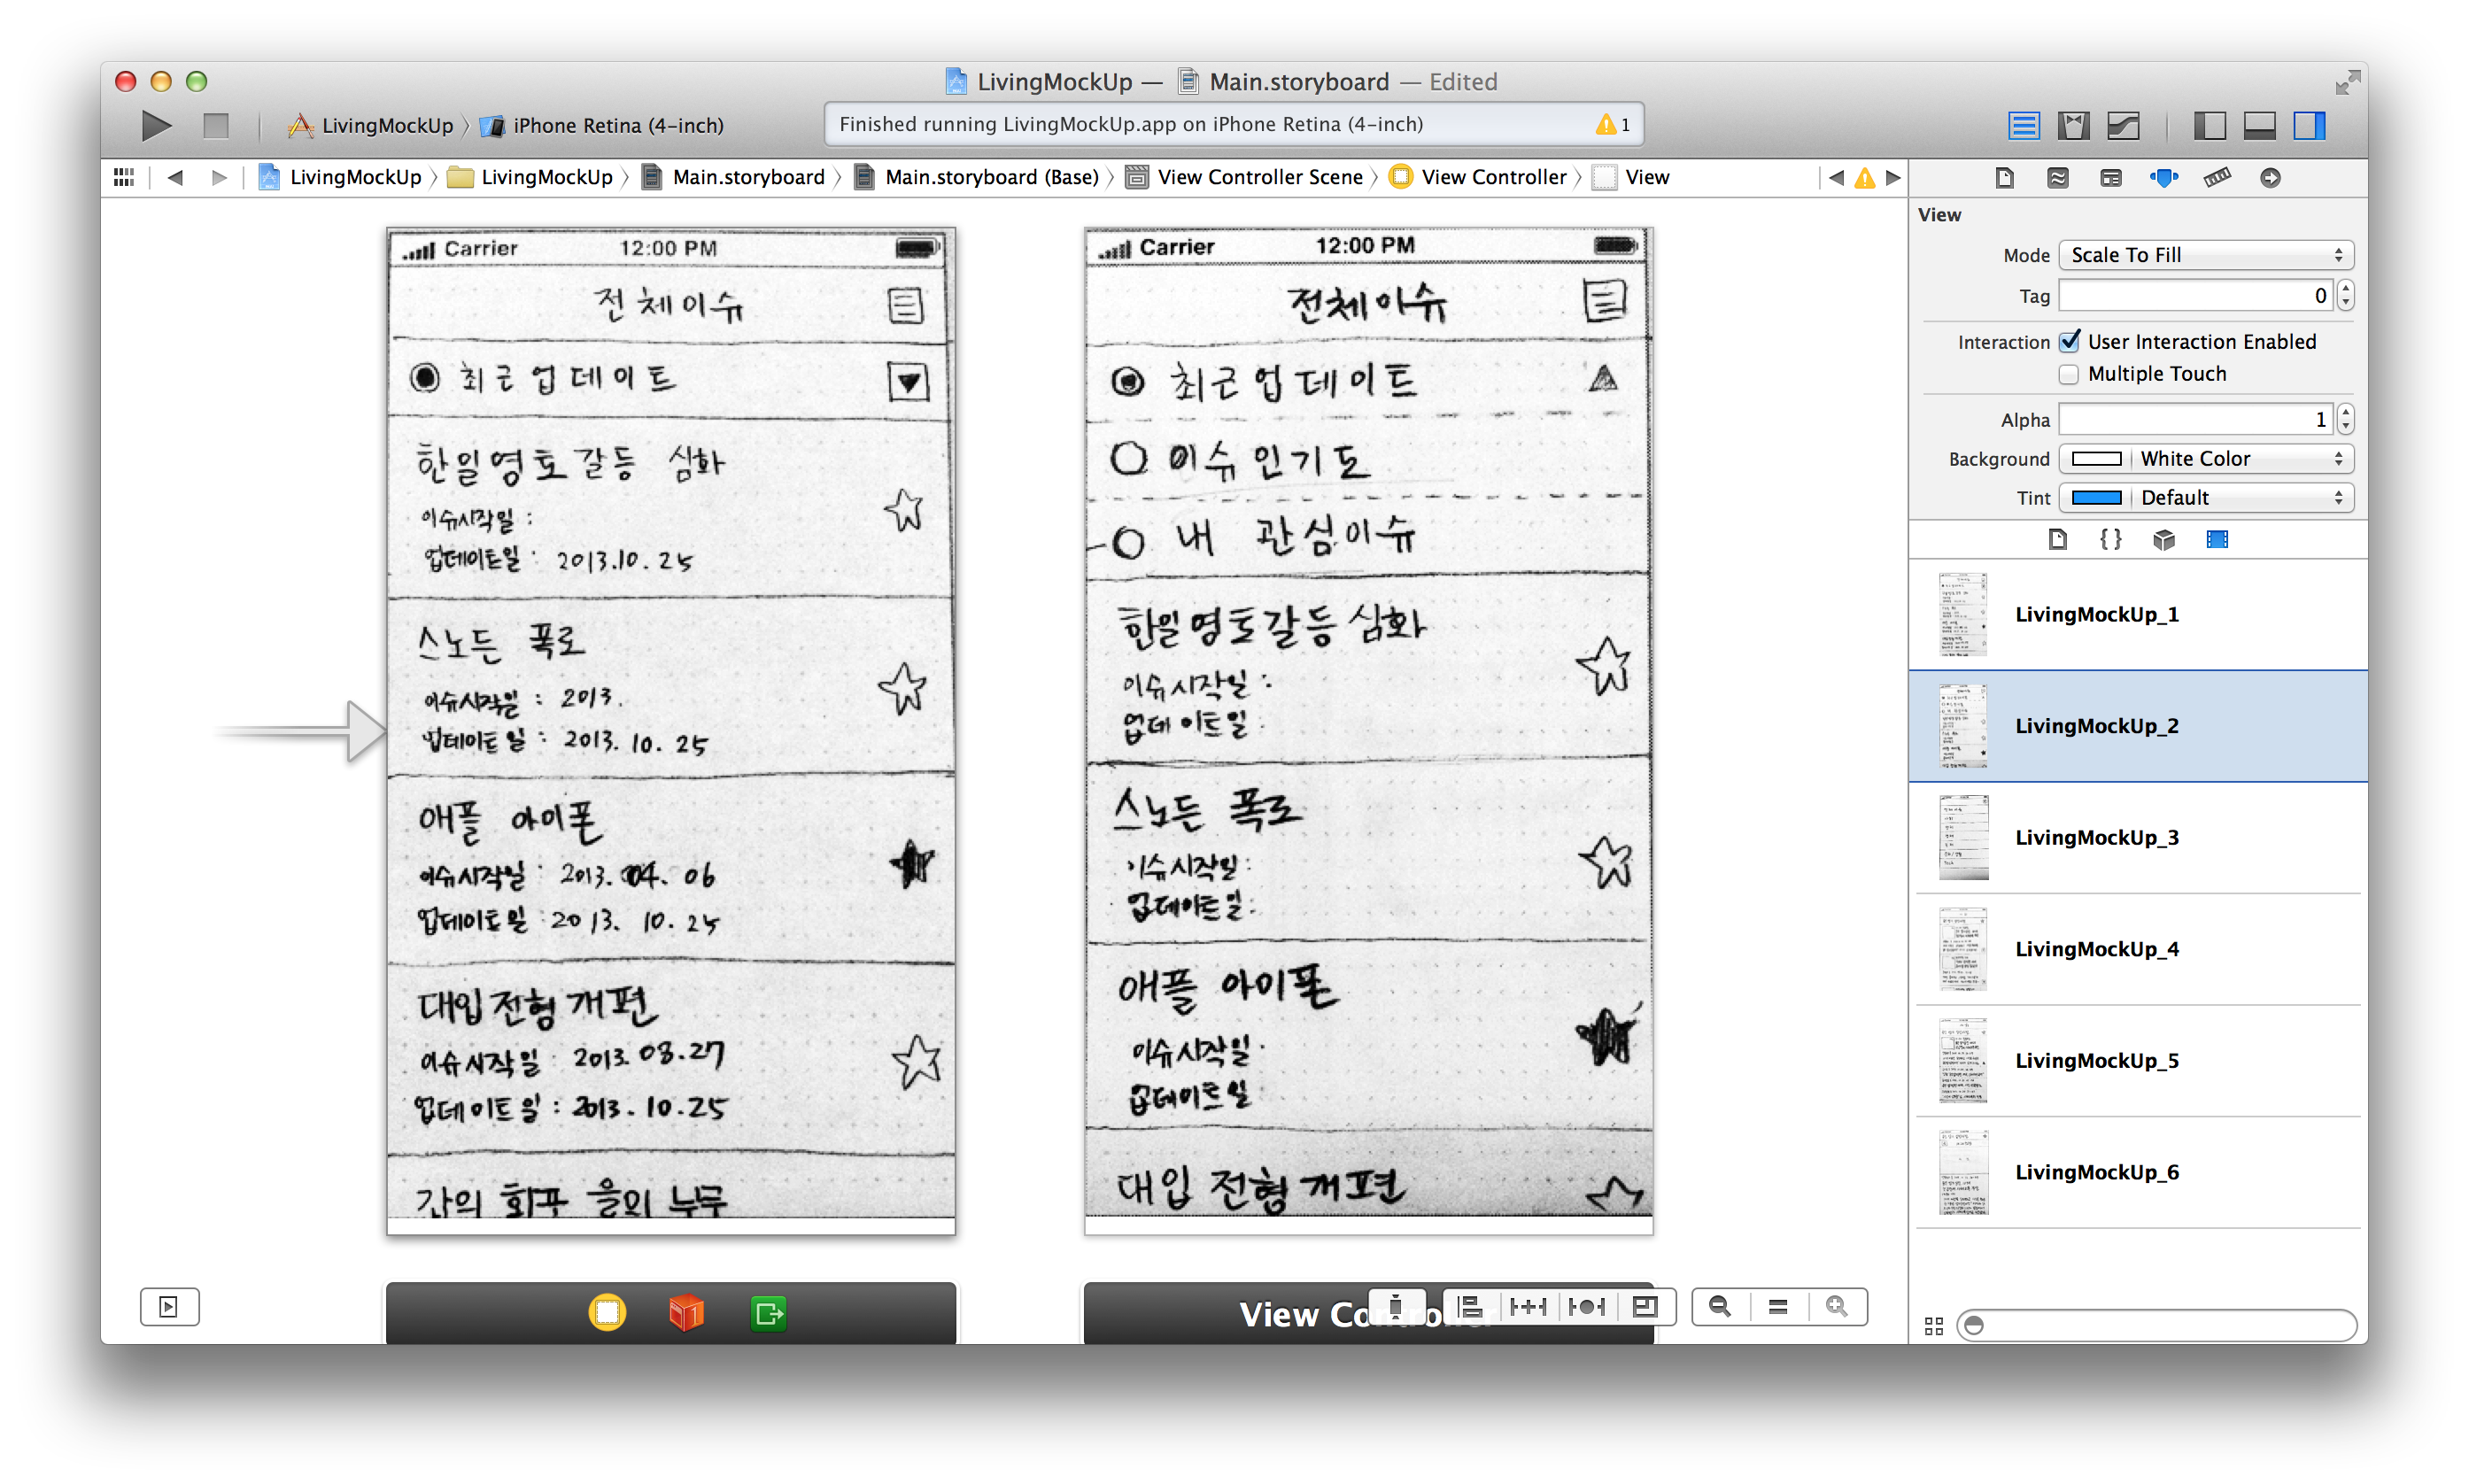 LivingMockUp — Main.storyboard — Edited
LivingMockUp iPhone Retina (4-inch)
Finished running LivingMockUp.app on iPhone Retina (4-inch) 1
LivingMockUp LivingMockUp Main.storyboard Main.storyboard (Base) View Controller Scene View Controller View
Carrier 12:00 PM
전체이슈
최근업데이트
한일영토갈등 심화
이슈시작일 :
업데이트일 : 2013.10.25
스노든 폭로
이슈시작일 : 2013.
업데이트일 : 2013.10.25
애플 아이폰
이슈시작일 : 2013.04.06
업데이트일 : 2013.10.25
대입전형개편
이슈시작일 : 2013.08.27
업데이트일 : 2013.10.25
Carrier 12:00 PM
전체이슈
최근업데이트
이슈인기도
내 관심이슈
한일영토갈등심화
이슈시작일 :
업데이트일 :
스노든 폭로
이슈시작일 :
업데이트일 :
애플 아이폰
이슈시작일 :
업데이트일
대입 전형개편
View Controller
View
Mode Scale To Fill
Tag 0
Interaction User Interaction Enabled
Multiple Touch
Alpha 1
Background White Color
Tint Default
{ }
LivingMockUp_1
LivingMockUp_2
LivingMockUp_3
LivingMockUp_4
LivingMockUp_5
LivingMockUp_6